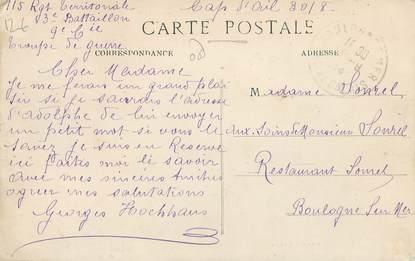 115 Rgt Territoriale
3e Battaillon
9e Cie
Troupe de guerre
Cap d'Ail 30/8
126
CARTE POSTALE
CORRESPONDANCE
ADRESSE
Cher Madame
Je me ferais un grand plai
sir si je saurais l'adresse
d'adolphe de lui envoyer
un petit mot si vous le
savez je suis en Reserve
ici faites moi le savoir
avec mes sincères amitiés
agreer mes salutations
Georges Hochhaus
Madame Sonrel
Aux Soins de Monsieur Sonrel
Restaurant Sonrel
Boulogne Sur Mer